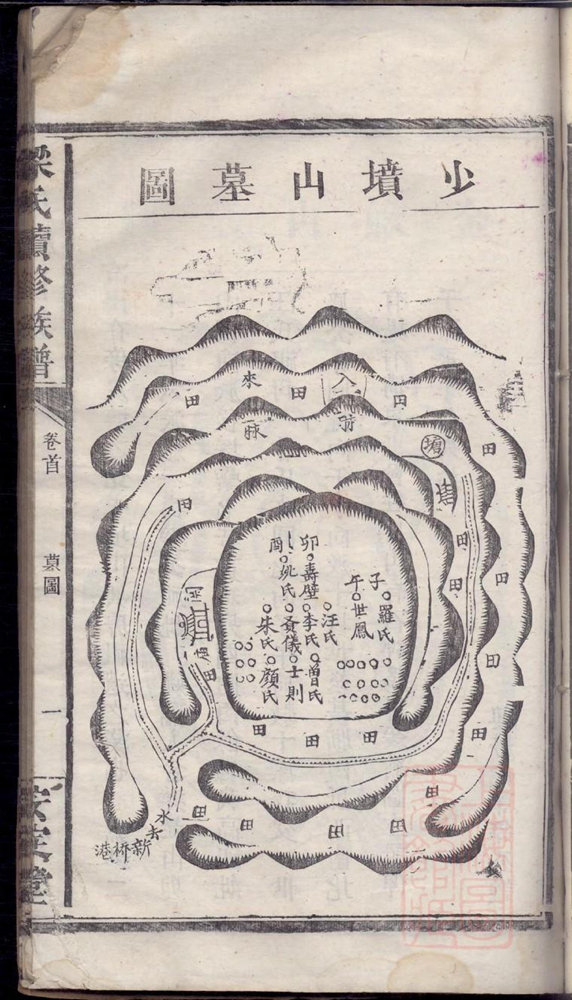 少墳山墓圖
來
入
脉
田
田
田
田
塘
田
田
田
田
田
田
田
田
田
田
田
田
田
田
子
羅氏
午
世鳳
汪氏
卯
壽璧
李氏
曾氏
酉
姚氏
斎儀
士則
朱氏
顏氏
水去
新桥港
梁氏續修族譜
卷首
墓圖
一